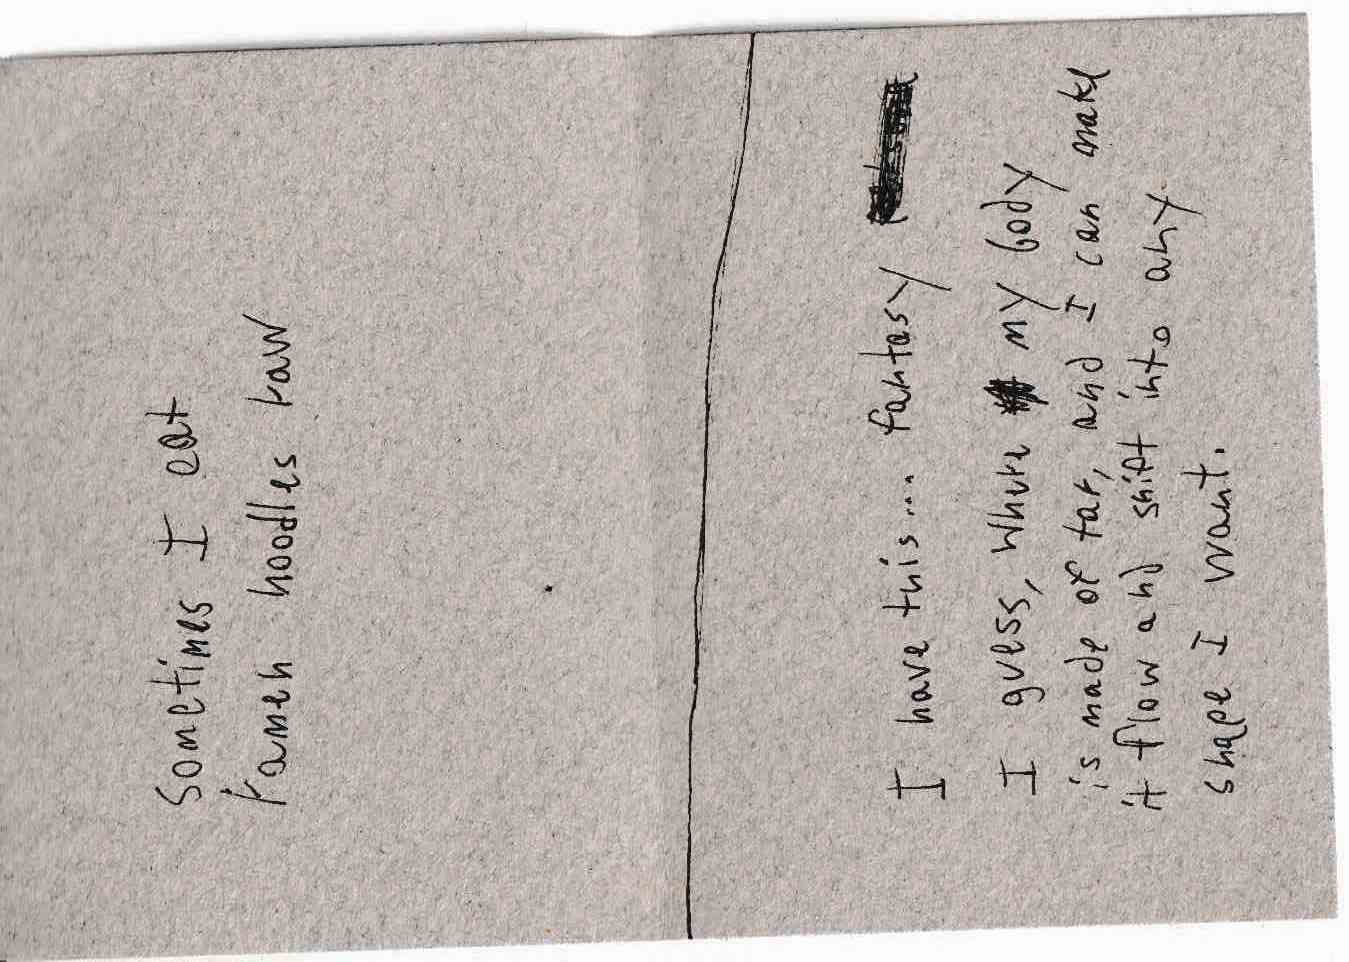 Sometimes I eat
ramen noodles raw
I have this... fantasy
I guess, where my body
is made of tar, and I can make
it flow and shift into any
shape I want.